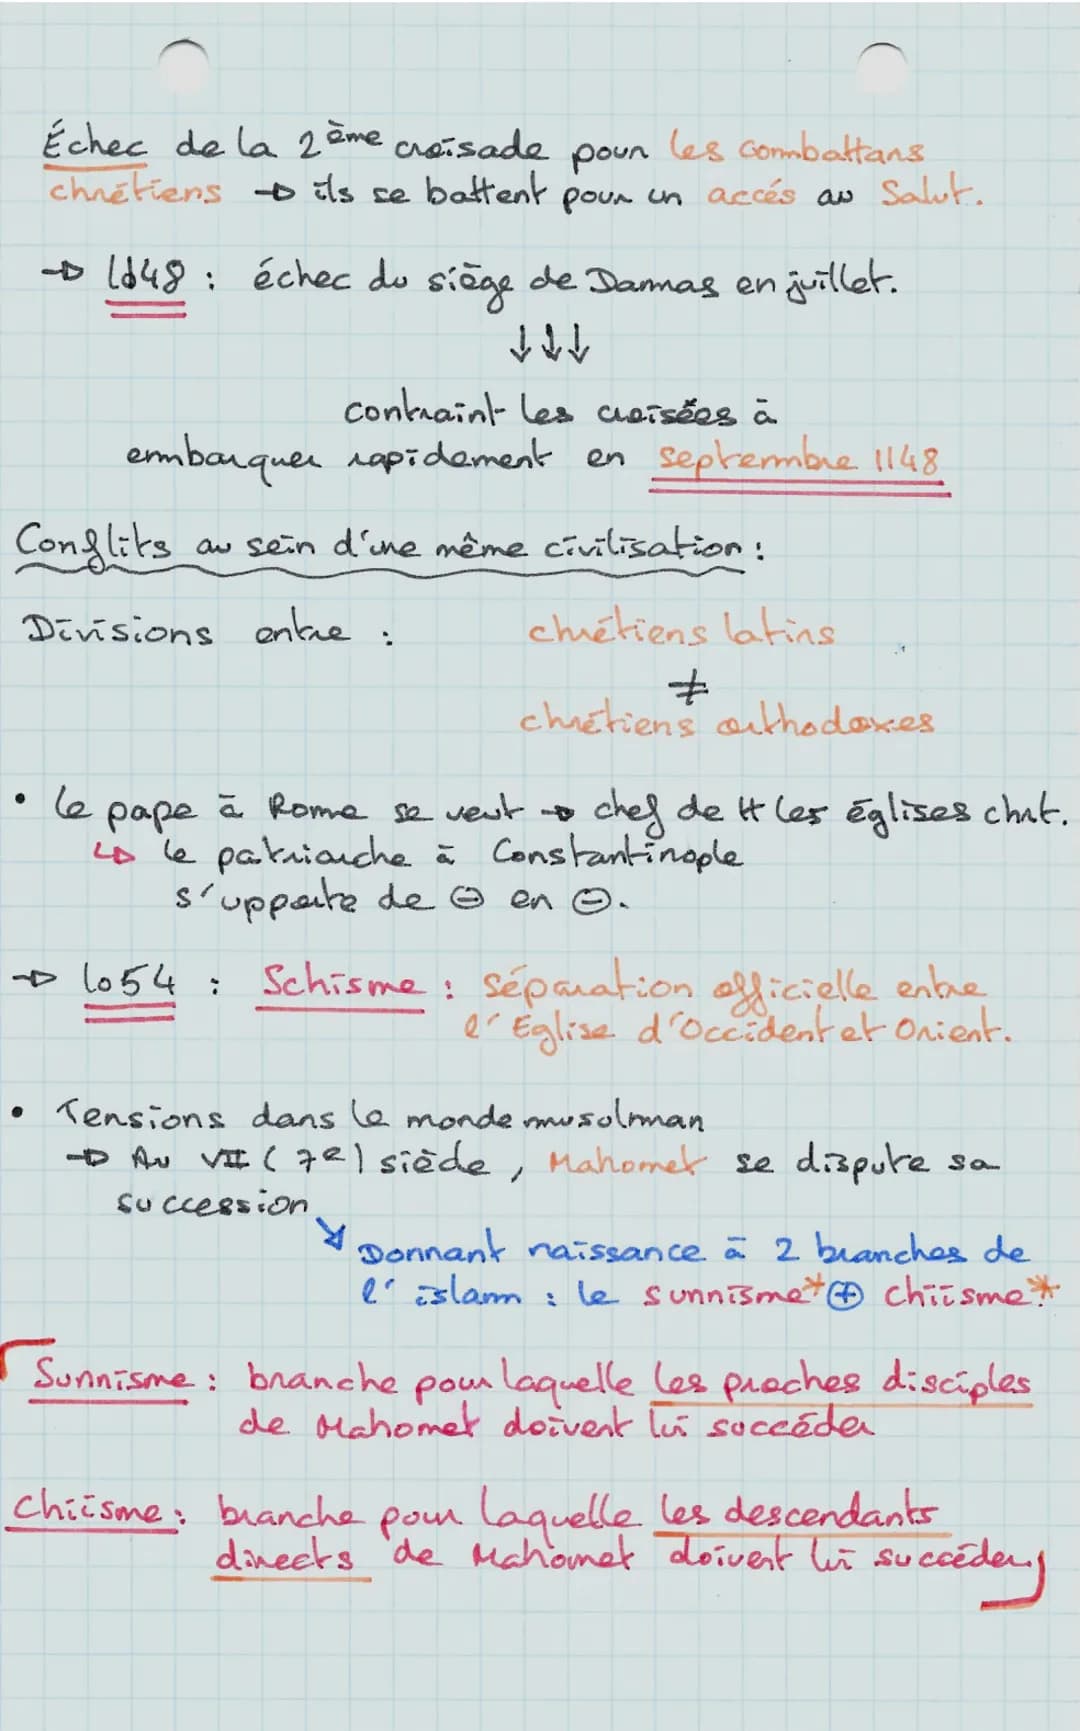 Échec de la 2ème croisade pour les combattans
chrétiens → ils se battent pour un accés au Salut.
→ 1148 : échec du siège de Damas en juillet.
↓↓↓
contraint les croisées à
embarquer rapidement en septembre 1148
Conflits au sein d'une même civilisation :
Divisions entre : chrétiens latins
≠
chrétiens orthodoxes
• le pape à Rome se veut → chef de tt les églises chrt.
↳ le patriarche à Constantinople
s'upporte de ⊖ en ⊖.
→ 1054 : Schisme : séparation officielle entre
l'Eglise d'Occident et Orient.
• Tensions dans le monde musulman
→ Au VII (7e) siècle, Mahomet se dispute sa
succession
↘ Donnant naissance à 2 branches de
l'islam : le sunnisme* ⊕ chiisme*.
Sunnisme : branche pour laquelle les proches disciples
de Mahomet doivent lui succéder
Chiisme : branche pour laquelle les descendants
directs de Mahomet doivent lui succéder.